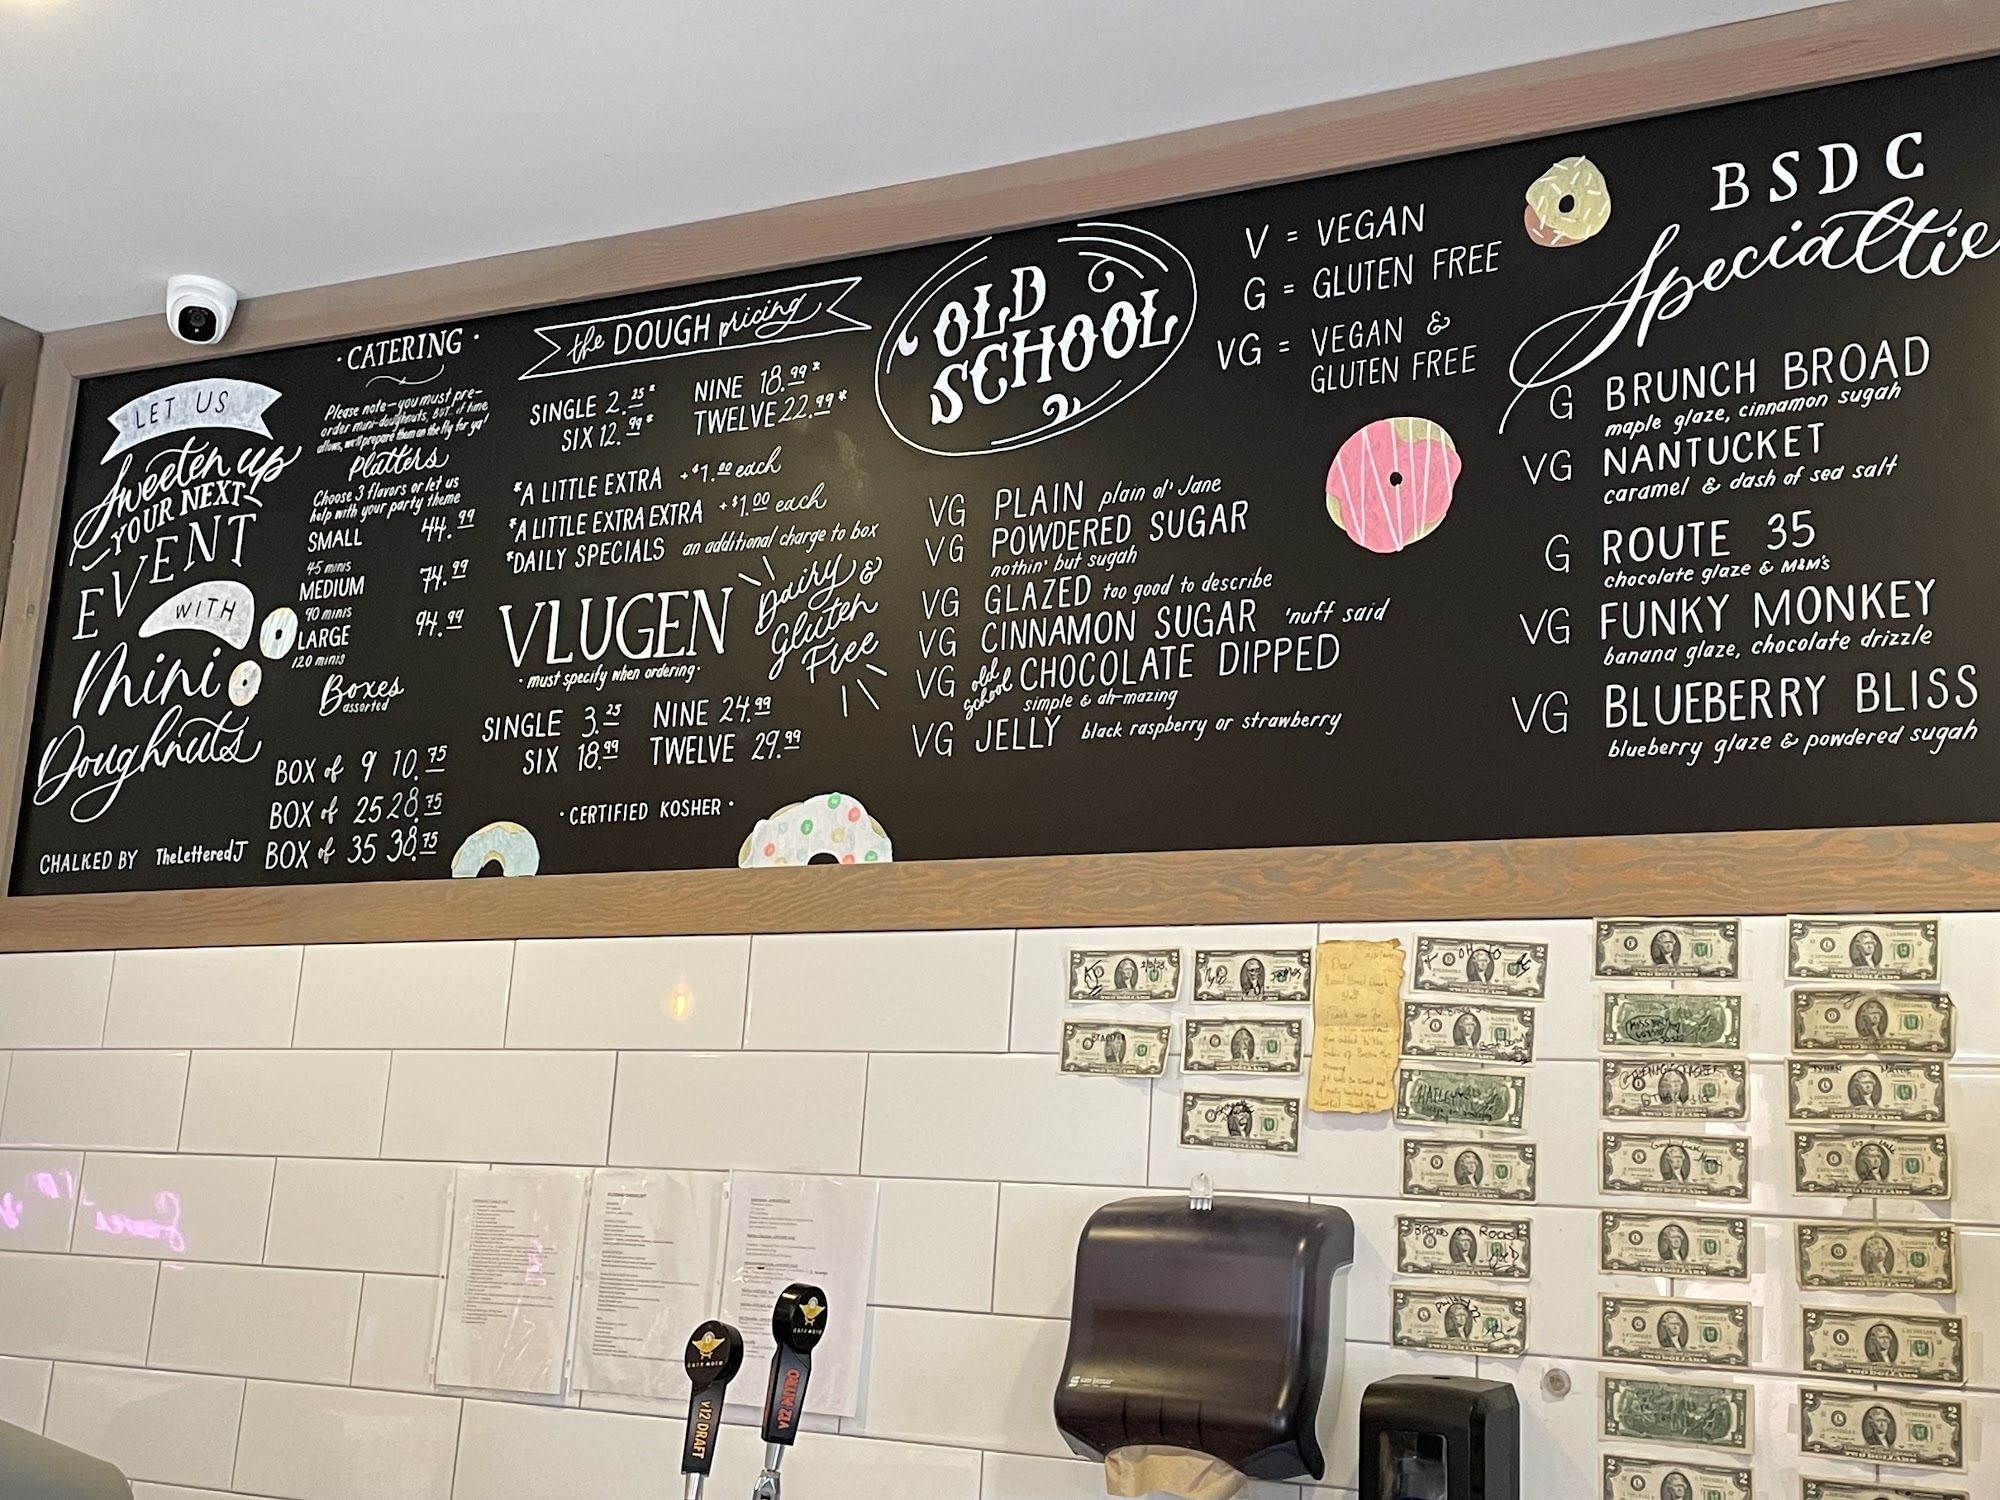 LET US
Sweeten up
YOUR NEXT
EVENT
WITH
Mini
Doughnuts
CHALKED BY TheLetteredJ
· CATERING ·
Please note—you must pre-
order mini-doughnuts, BUT.. if time
allows, we'll prepare them on the fly for ya!
Platters
Choose 3 flavors or let us
help with your party theme
SMALL 44.99
45 minis
MEDIUM 74.99
90 minis
LARGE 94.99
120 minis
Boxes
assorted
BOX of 9 10.75
BOX of 25 28.75
BOX of 35 38.75
the DOUGH pricing
SINGLE 2.25* NINE 18.99*
SIX 12.99* TWELVE 22.99*
*A LITTLE EXTRA +$1.00 each
*A LITTLE EXTRA EXTRA +$1.00 each
*DAILY SPECIALS an additional charge to box
VLUGEN
· must specify when ordering ·
Dairy &
Gluten
Free
SINGLE 3.25 NINE 24.99
SIX 18.99 TWELVE 29.99
· CERTIFIED KOSHER ·
OLD
SCHOOL
V = VEGAN
G = GLUTEN FREE
VG = VEGAN &
GLUTEN FREE
VG PLAIN plain ol' Jane
VG POWDERED SUGAR
nothin' but sugah
VG GLAZED too good to describe
VG CINNAMON SUGAR 'nuff said
VG old school CHOCOLATE DIPPED
simple & ah-mazing
VG JELLY black raspberry or strawberry
BSDC
Specialtie
G BRUNCH BROAD
maple glaze, cinnamon sugah
VG NANTUCKET
caramel & dash of sea salt
G ROUTE 35
chocolate glaze & M&M's
VG FUNKY MONKEY
banana glaze, chocolate drizzle
VG BLUEBERRY BLISS
blueberry glaze & powdered sugah
CAFE MOTO
V12 DRAFT
CAFE MOTO
V12 NITRO
san jamar
Dear
TWO DOLLARS